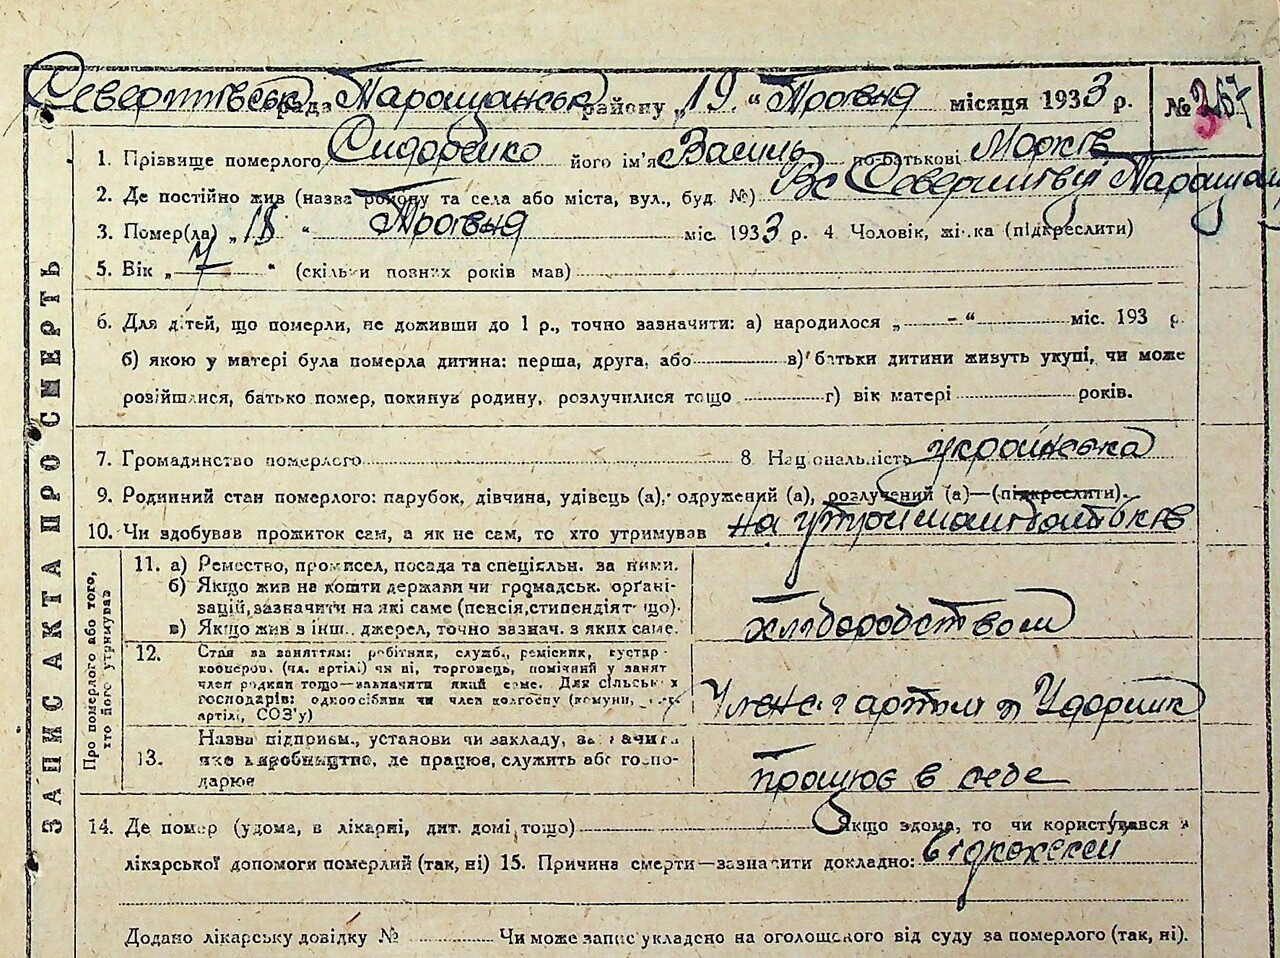 рада Таращанськ району „19.“ Травня місяця 1933 р. №
1. Прізвище померлого Сидоренко його ім'я Василь по-батькові Марків
2. Де постійно жив (назва району та села або міста, вул., буд. №)
3. Помер(ла) „18“ Травня міс. 1933 р. 4. Чоловік, жінка (підкреслити)
5. Вік „7“ (скільки повних років мав)
6. Для дітей, що померли, не доживши до 1 р., точно зазначити: а) народилося „ - “ міс. 193 р.
б) якою у матері була померла дитина: перша, друга, або в) батьки дитини живуть укупі, чи може
розійшлися, батько помер, покинув родину, розлучилися тощо г) вік матері років.
7. Громадянство померлого 8 Національність українська
9. Родинний стан померлого: парубок, дівчина, удівець (а), одружений (а), розлучений (а)—(підкреслити).
10. Чи здобував прожиток сам, а як не сам, то хто утримував на утриманні батьків
ЗАПИС АКТА ПРО СМЕРТЬ
Про померлого або того, хто його утримував
11. а) Ремество, промисел, посада та спеціяльн. за ними.
б) Якщо жив на кошти держави чи громадськ. орґані-
зацій, зазначити на які саме (пенсія, стипендія тощо).
в) Якщо жив з інш. джерел, точно зазнач. з яких саме.
хліборобством
12. Стан за заняттям: робітник, служб., ремісник, кустар-
кооперов. (чл. артілі) чи ні, торговець, помічний у занят
член родини тощо—зазначити який саме. Для сільськ х
господарів: одноосібник чи член колгоспу (комуни,
артілі, СОЗ'у)
Член с г артіли Ударник
13. Назва підприєм., установи чи закладу, зазначити
яке виробництво, де працює, служить або госпо-
дарює
працює в себе
14. Де помер (удома, в лікарні, дит. домі тощо) Якщо вдома, то чи користувався
лікарської допомоги померлий (так, ні) 15. Причина смерти—зазначити докладно:
Додано лікарську довідку № Чи може запис укладено на оголошеного від суду за померлого (так, ні).